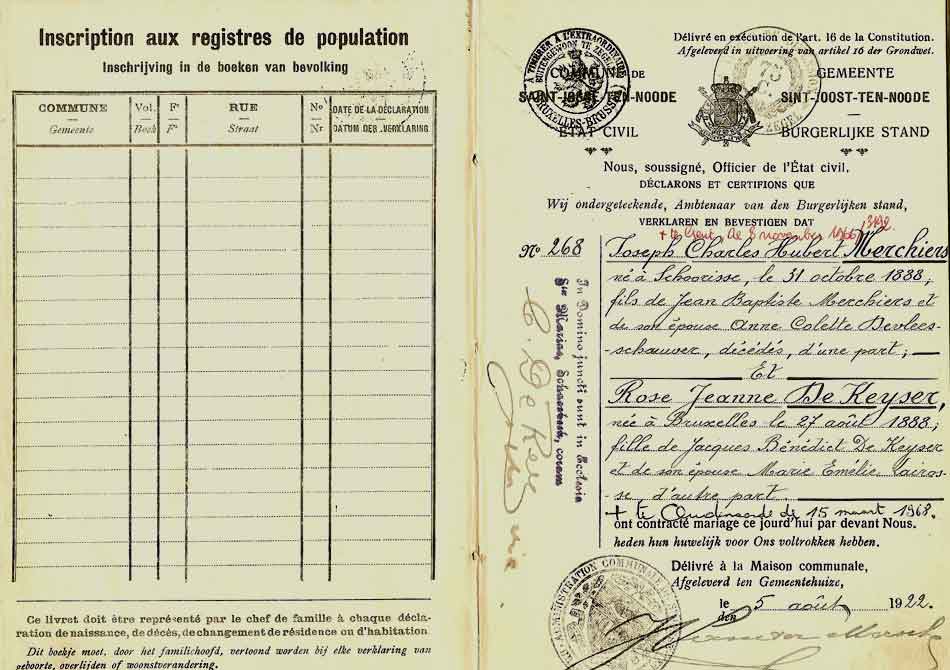 Inscription aux registres de population
Inschrijving in de boeken van bevolking
COMMUNE Vol. Fº RUE Nº DATE DE LA DÉCLARATION
Gemeente Boek Fº Straat Nr DATUM DER VERKLARING
Ce livret doit être représenté par le chef de famille à chaque décla-
ration de naissance, de décès, de changement de résidence ou d'habitation
Dit boekje moet, door het familiehoofd, vertoond worden bij elke verklaring van
geboorte, overlijden of woonstverandering.
Délivré en exécution de l'art. 16 de la Constitution.
Afgeleverd in uitvoering van artikel 16 der Grondwet.
A TIMBRER A L'EXTRAORDINAIRE
BUITENGEWOON TE ZEGELEN
BRUXELLES-BRUSSEL
75
ZEGEL
COMMUNE DE GEMEENTE
SAINT-JOSSE-TEN-NOODE SINT-JOOST-TEN-NOODE
ÉTAT CIVIL BURGERLIJKE STAND
Nous, soussigné, Officier de l'État civil,
DÉCLARONS ET CERTIFIONS QUE
Wij ondergeteekende, Ambtenaar van den Burgerlijken stand,
VERKLAREN EN BEVESTIGEN DAT
+ te Gent, de 8 november 1966
Nº 268 Joseph Charles Hubert Merchiers
né à Schoorisse, le 31 octobre 1888,
fils de Jean Baptiste Merchiers et
de son épouse Anne Colette Devlees-
schauver, décédés, d'une part;
Et
Rose Jeanne De Keyser,
née à Bruxelles le 27 août 1888,
fille de Jacques Bénédict De Keyser
et de son épouse Marie Emélie Lairos-
se, d'autre part.
+ te Oudenaarde de 15 maart 1968.
ont contracté mariage ce jourd'hui par devant Nous.
heden hun huwelijk voor Ons voltrokken hebben.
In Domino juncti sunt in Ecclesia
Stae Mariae, Schaerbeek, coram
Délivré à la Maison communale,
Afgeleverd ten Gemeentehuize,
le
den 5 août 1922.
ADMINISTRATION COMMUNALE